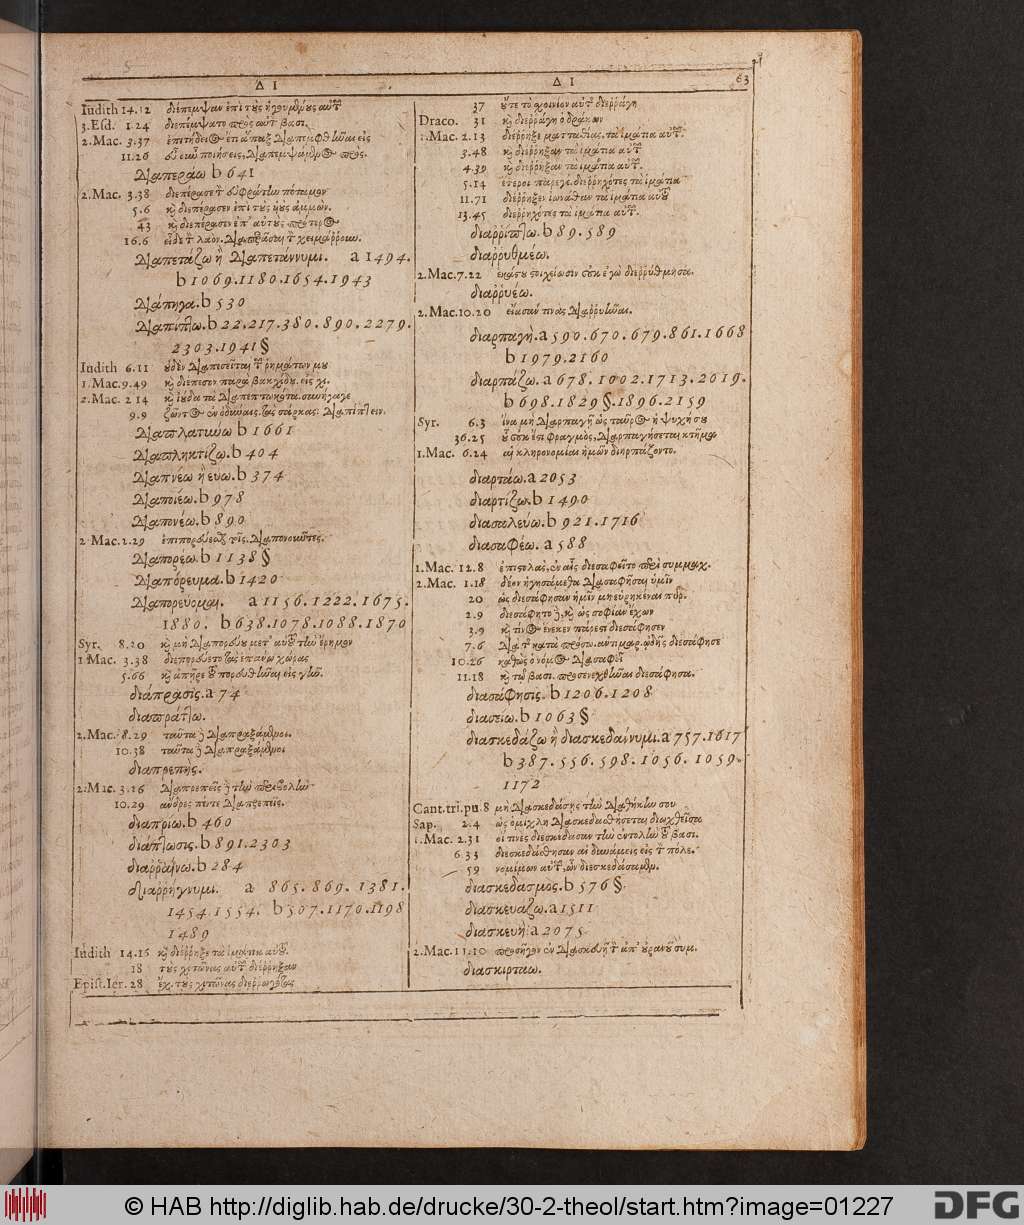 Δ Ι
Δ Ι 63
Iudith 14.12 διέπεμψαν ἐπὶ τοὺς αὐτῶν
3.Esd. 1.24 διεπέμψατο πρὸς αὐτὸν βασι.
2.Mac. 3.37 ἐπιτήδειος ἔτι ἅπαξ διαπεμφθῆναι εἰς
11.26 οὖν ποιήσεις, διαπεμψάμενος πρὸς.
διαπεράω b 641
2.Mac. 3.38 διεπέρασε τὸν ποταμὸν
5.6 καὶ διεπέρασεν ἐπὶ τοὺς ἄμμων.
43 καὶ διεπέρασεν ἐπ' αὐτοὺς πρότερος
16.6 εἶδε τὸν λαὸν διαπερᾶσαι τὸν χειμάρρουν.
διαπετάζω ἢ διαπετάννυμι. a 1494.
b 1069.1180.1654.1943
διάπηγα. b 530
διαπίπτω. b 22.217.380.890.2279.
2303.1941 §
Iudith 6.11 οὐδὲν διαπεσεῖται τῶν ῥημάτων μου
1.Mac. 9.49 καὶ διέπεσον παρὰ βακχίδου. εἰς χι.
2.Mac. 2 14 καὶ ἰούδα τὰ διαπεπτωκότα συνήγαγε
9.9 ζῶντος ἐν ὀδύναις τὰς σάρκας διαπίπτειν.
διαπλατύνω b 1661
διαπληκτίζω. b 404
διαπνέω ἢ ευω. b 374
διαποιέω. b 978
διαπονέω. b 890
2 Mac. 2.29 ἐπιπορεύεσθαι τοῖς διαπονοῦντες.
διαπορέω. b 1138 §
διαπόρευμα. b 1420
διαπορεύομαι. a 1156.1222.1675.
1880. b 638.1078.1088.1870
Syr. 8.20 καὶ μὴ διαπορεύου μετ' αὐτοῦ τὴν ἔρημον
1 Mac. 3.38 διεπορεύετο τὰς ἐπάνω χώρας
5.66 καὶ ἀπῆρε τοῦ πορευθῆναι εἰς γῆν.
διάπρασις. a 74
διαπράττω.
2.Mac. 8.29 ταῦτα δὲ διαπραξάμενοι.
10.38 ταῦτα δὲ διαπραξάμενοι
διαπρεπής.
2.Mac. 3.26 διαπρεπεῖς δὲ τὴν περιβολὴν
10.29 ἄνδρες πέντε διαπρεπεῖς.
διαπρίω. b 460
διάπτωσις. b 891.2303
διαρραίνω. b 284
διαρρήγνυμι. a 865.869. 1381.
1454.1554. b 507.1170.1198
1489
Iudith 14.16 καὶ διέρρηξε τὰ ἱμάτια αὐτοῦ.
18 τοὺς χιτῶνας αὐτῶν διέρρηξαν
Epist.Ier. 28 ἔχ. τοὺς χιτῶνας διερρωγότας
37 οὔτε τὸ σχοινίον αὐτῶν διερράγη
Draco. 31 καὶ διερράγη ὁ δράκων
1.Mac. 2.13 διέρρηξε ματταθίας, τὰ ἱμάτια αὐτῶν.
3.48 καὶ διέρρηξαν τὰ ἱμάτια αὐτῶν
4.39 καὶ διέρρηξαν τὰ ἱμάτια αὐτῶν.
5.14 ἕτεροι παρεγέ. διερρηχότες τὰ ἱμάτια
11.71 διέρρηξεν ἰωνάθαν τὰ ἱμάτια αὐτοῦ
13.45 διερρηχότες τὰ ἱμάτια αὐτῶν.
διαρρίπτω. b 89.589
διαρρυθμέω.
2.Mac. 7.22 ἑκάστου στοιχείωσιν οὐκ ἐγὼ διερρύθμησα.
διαρρυέω.
2.Mac. 10.20 εἴασάν τινας διαρρυῆναι.
διαρπαγή. a 590.670.679.861.1668
b 1979.2160
διαρπάζω. a 678.1002.1713.2019.
b 698.1829 §.1896.2159
Syr. 6.3 ἵνα μὴ διαρπαγῇ ὡς ταῦρος ἡ ψυχή σου
36.25 οὗ οὐκ ἔστι φραγμὸς, διαρπαγήσεται κτῆμα
1.Mac. 6.24 αἱ κληρονομίαι ἡμῶν διηρπάζοντο.
διαρτάω. a 2053
διαρτίζω. b 1490
διασαλεύω. b 921.1716
διασαφέω. a 588
1.Mac. 12.8 ἐπιστολὰς, ἐν αἷς διεσαφεῖτο περὶ συμμαχ.
2.Mac. 1.18 δέον ἡγησάμεθα διασαφῆσαι ὑμῖν
20 ὡς διεσάφησαν ἡμῖν μὴ εὑρηκέναι πῦρ.
2.9 διεσαφητο δὲ, καὶ ὡς σοφίαν ἔχων
3.9 καὶ τίνος ἕνεκεν πάρεστι διεσάφησεν
7.6 διὰ τῆς κατὰ πρόσω. αντιμαρ. ᾠδῆς διεσάφησε
10.26 καθὼς ὁ νόμος διασαφεῖ
11.18 καὶ τῷ βασι. προσενεχθῆναι διεσάφησα.
διασάφησις. b 1206.1208
διασείω. b 1063 §
διασκεδάζω ἢ διασκεδάννυμι. a 757.1617
b 387.556.598.1056.1059.
1172
Cant.tri.pu. 8 μὴ διασκεδάσης τὴν διαθήκην σου
Sap. 2.4 ὡς ὁμίχλη διασκεδασθήσεται διωχθεῖσα
1.Mac. 2.31 οἵτινες διεσκέδασαν τὴν ἐντολὴν τοῦ βασι.
6.33 διεσκεδάσθησαν αἱ δυνάμεις εἰς τὸν πόλε.
59 νομίμων αὐτῶν, ὧν διεσκεδάσαμεν.
διασκεδασμός. b 576 §.
διασκευάζω. a 1511
διασκευή a 2075.
2.Mac. 11.10 προσῆγον ἐν διασκευῇ τὸν ἀπ' οὐρανοῦ συμ.
διασκιρτάω.
© HAB http://diglib.hab.de/drucke/30-2-theol/start.htm?image=01227
DFG